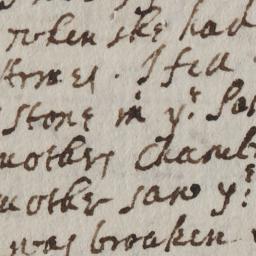 when she had
times. I fell
stone in yͤ:
mother Chamb
mother saw yͤ:
was broaken